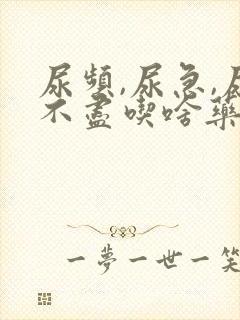 尿頻,尿急,尿
不盡喫啥藥
一夢一世一笑